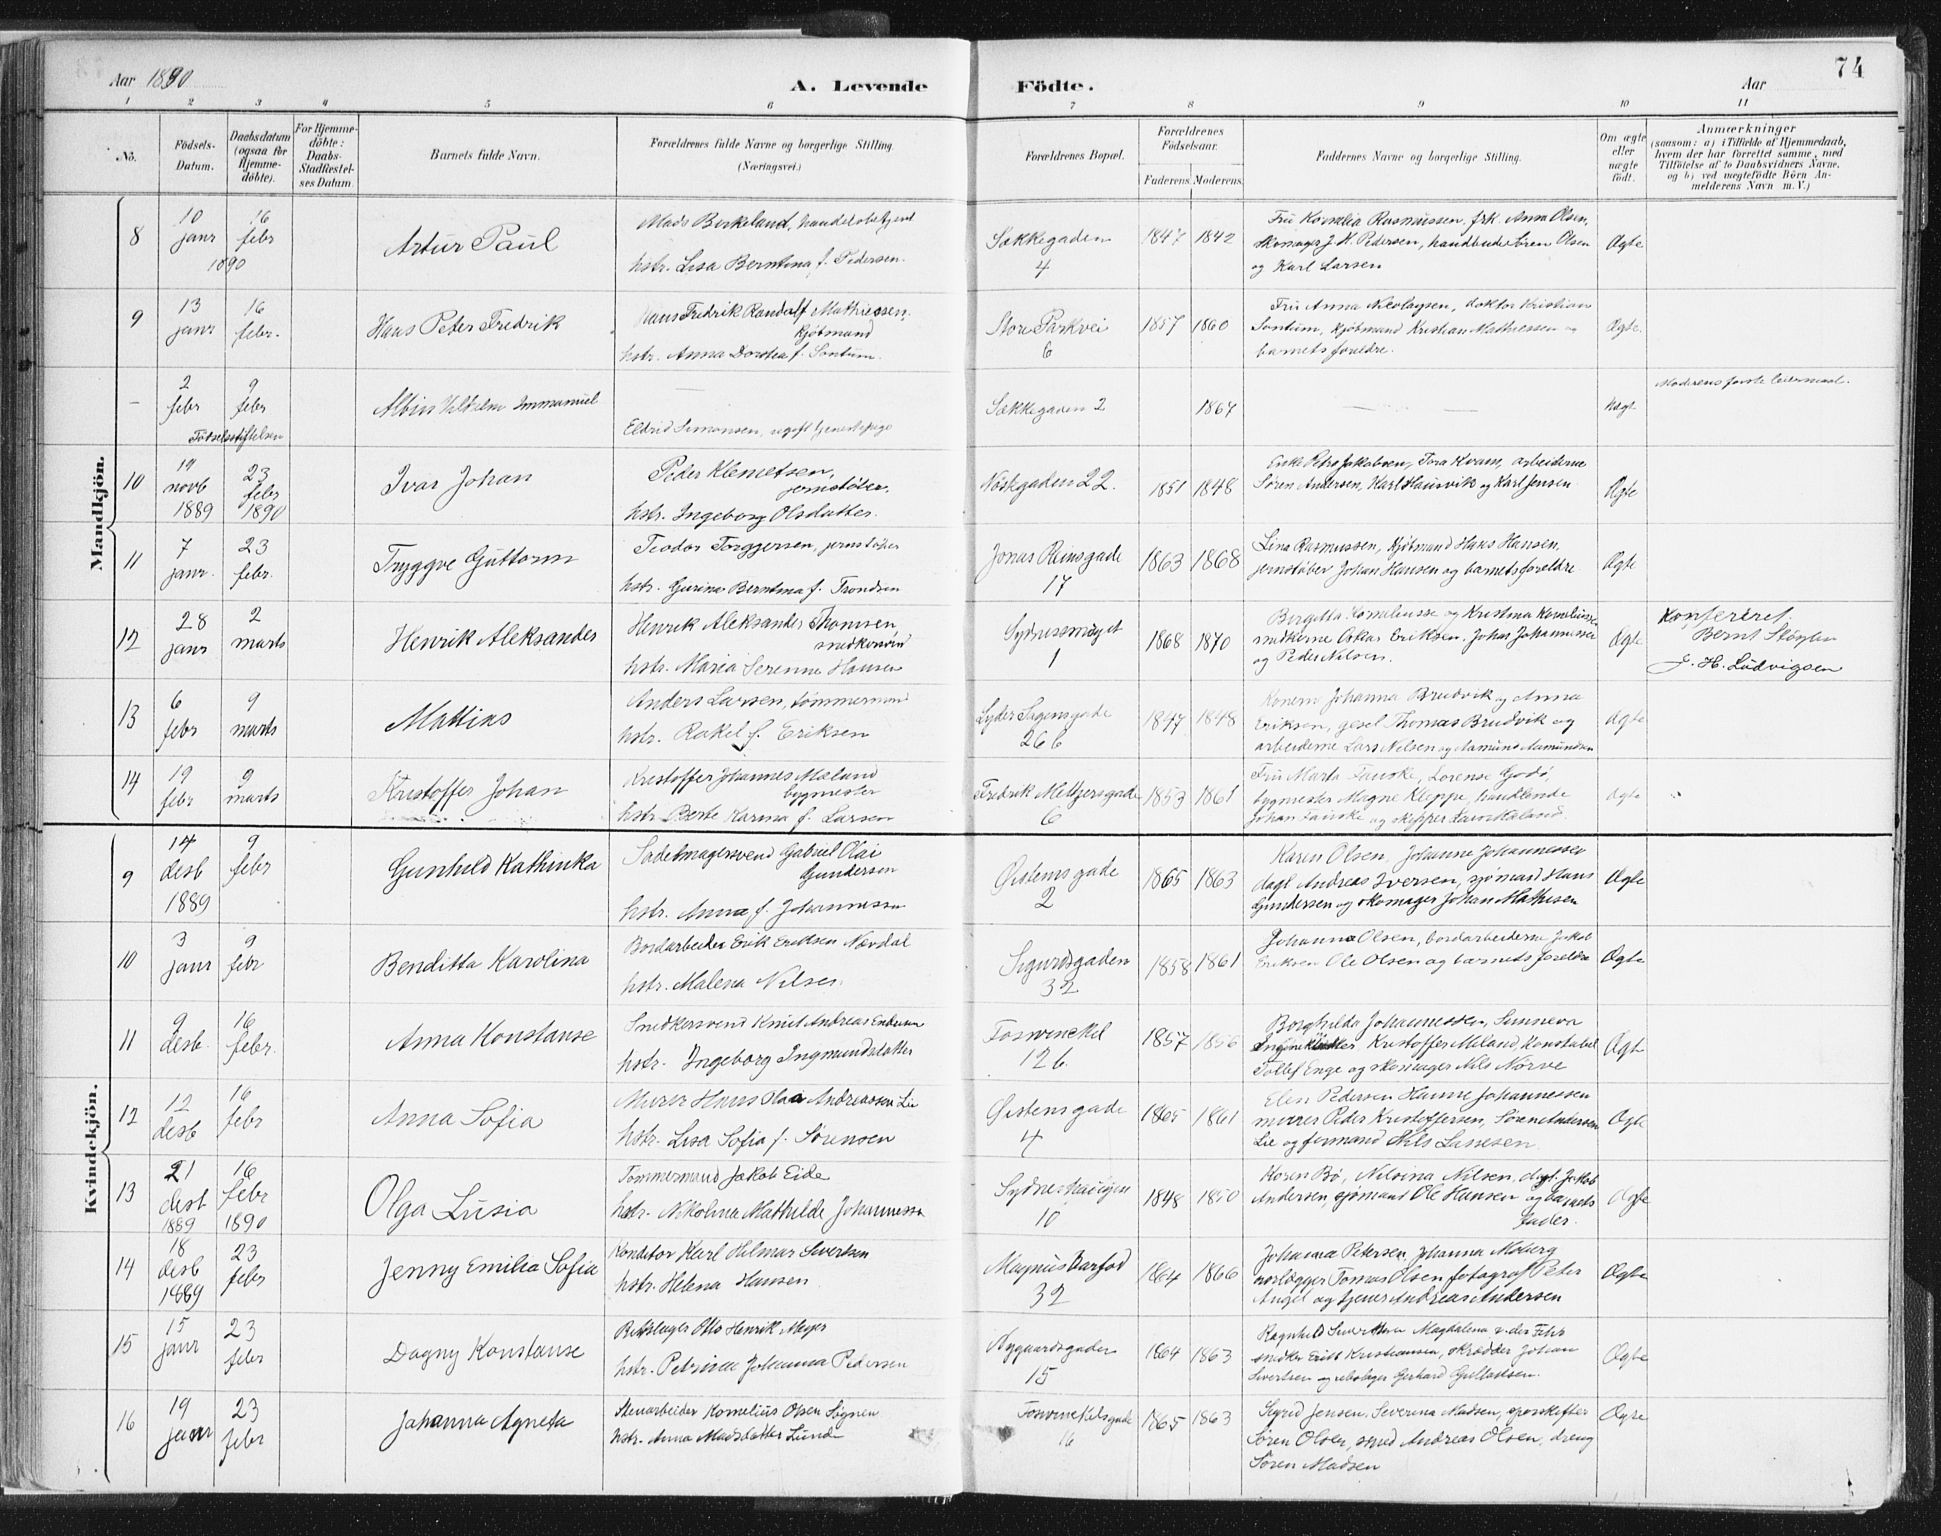 Aar 1890
A. Levende Födte.
Aar
74
1 2 3 4 5 6 7 8 9 10 11
No.
Födsels-
Datum.
Daabsdatum
(ogsaa for
Hjemme-
döbte).
For Hjemme-
döbte:
Daabs-
Stadfæstel-
ses Datum
Barnets fulde Navn.
Forældrenes fulde Navne og borgerlige Stilling.
(Næringsvei.)
Forældrenes Bopæl.
Forældrenes
Födselsaar.
Faderens. Moderens.
Faddernes Navne og borgerlige Stilling.
Om ægte
eller
uægte
födt.
Anmærkninger
(saasom: a) i Tilfælde af Hjemmedaab,
hvem der har forrettet samme, med
Tilföielse af to Daabsvidners Navne,
og b) ved uægtefödte Börn An-
melderens Navn m. V.)
Mandkjön.
8
10 janr 16 febr
1890
Artur Paul
Mads Birkeland, handelsbetjent
hstr. Lisa Berntina f. Pedersen.
Sækkegaden
4
1847 1842
Fru Kornelia Rasmussen, frk. Anna Olsen,
Skomager J. H. Pedersen, handbude Søren Olsen
og Karl Larsen
Ægte
9
13 janr 16 febr.
Hans Peter Fredrik
Hans Fredrik Randolf Mathiessen,
Kjötmand
hstr. Anna Dorthea f. Sontum.
Store Parkvei
6
1857 1860
Fru Anna Nicolaysen, doktor Kristian
Sontum, Kjötmand Kristian Mathiessen og
barnets foreldre.
Ægte
–
2 febr 9 febr
Fødselsstiftelsen
Albin Vilhelm Immanuel
—
Eldrid Simonsen, ugift tjenestepige
Sækkegaden 2
1867
— —
Uægt
Moderens første leiermaal.
10
19 novb 1889 23 febr 1890
Ivar Johan
Peder Klemetsen,
jernstøber.
hstr. Ingeborg Olsdatter.
Nöstegaden 22.
1851 1848
Enke Petra Jakobsen, Tora Kvam, arbeiderne
Søren Andersen, Karl Hausvik og Karl Jensen
Ægte
11
7 janr. 23 febr.
Tryggve Guttorm
Teodor Torggersen, jernstøber
hstr. Gurina Berntina f. Trondsen
Jonas Reinsgade
17
1863 1868
Lina Rasmussen, Kjötmand Hans Hansen,
jernstøber Johan Hansen og barnets foreldre
Ægte
12
28 janr 2 marts
Henrik Aleksander
Henrik Aleksander Thomsen
snedkersvend
hstr. Maria Serenne Hansen
Sydnessmuget
1
1868 1870
Birgitta Korneliussen og Kristina Korneliussen
snedkerne Oskar Eriksen, Johan Johannessen
og Peder Nilsen.
Ægte
Konfereret
Bernt Støylen
J. H. Ludvigsen
13
6 febr 9 marts
Mattias
Anders Larsen, tømmermand
hstr. Rakel f. Eriksen
Lyder Sagensgade
26 b
1847 1848
Konerne Johanna Brudvik og Anna
Eriksen, gesel Thomas Brudvik og
arbeiderne Lars Nelsen og Aamund Aamundsen
Ægte
14
19 febr 9 marts
Kristoffer Johan
Kristoffer Johannes Mæland
bygmester
hstr. Berte Karina f. Larsen
Fredrik Meltzersgade
6
1853 1861
Fru Marta Fanske, Lorense Godö,
bygmester Magne Kleppe, handlende
Johan Fanske og skipper Lars Mæland.
Ægte
Kvindekjön.
9
14 desb 1889 9 febr
Gunhild Kathinka
Sadelmagersvend Gabriel Olai
Gundersen
hstr. Anna f. Johannessen
Østensgade
2
1865 1863
Karen Olsen, Johanne Johannessen
dagl. Andreas Iversen, sjömand Hans
Gundersen og skomager Johan Mathisen
Ægte
10
3 janr 9 febr
Benditta Karolina
Bordarbeider Erik Eriksen Nævdal
hstr. Malena Nilsen.
Sigurdsgaden
32
1858 1861
Johanna Olsen, bordarbeiderne Jakob
Eriksen Ole Olsen og barnets foreldre
Ægte
11
9 desb. 16 febr.
Anna Konstanse
Snedkersvend Knut Andreas Endresen
hstr. Ingeborg Ingmundsdatter
Tosvinckel
12 b.
1857 1856
Borghilda Johannessen, Sunneva
Kristoffer Meland, Konstabel
Tollef Enge og skomager Nils Nörve
Ægte
12
12 desb 16 febr
Anna Sofia
Murer Hans Olaa Andreassen Lie
hstr. Lisa Sofia f. Sørensen
Østensgade
4
1865 1861
Elen Pedersen Hanne Johannessen
murer Peder Kristoffersen, Søren Andersen
Lie og formand Nils Lanesen
Ægte
13
21 desb 1889 16 febr 1890
Olga Lusia
Tømmermand Jakob Eide
hstr. Nikolina Mathilde Johannessen
Sydneshaugen
10
1848 1850
Karen Bø, Nilsina Nilsen, dagl. Jakob
Andersen, sjömand Ole Hansen og barnets
fader.
Ægte
14
18 desb 1889 23 febr
Jenny Emilia Sofia
Konditor Karl Hilmar Sivertsen
hstr. Helena Hansen
Magnus Barfod
32
1864 1866
Johanna Petersen, Johanna Moberg
rørlegger Tomas Olsen fotograf Peter
Angel og tjener Andreas Andersen
Ægte
15
15 janr 23 febr
Dagny Konstanse
Blikslager Otto Henrik Meyer
hstr. Petrina Johanna Pedersen
Nygaardsgaden
15
1864 1863
Ragnhild Sivertsen Magdalena
snedker Erik Kristiansen, skrædder Johan
Sivertsen og rebslager Gerhard Gullaksen.
Ægte
16
19 janr 23 febr
Johanna Agneta
Stenarbeider Kornelius Olsen Søgnen
hstr. Anna Madsdatter Lunde
Tosvinckelsgade
16
1865 1863
Sigrid Jensen, Severina Madsen, sporskifter
Søren Olsen, smed Andreas Olsen, dreng
Søren Madsen
Ægte